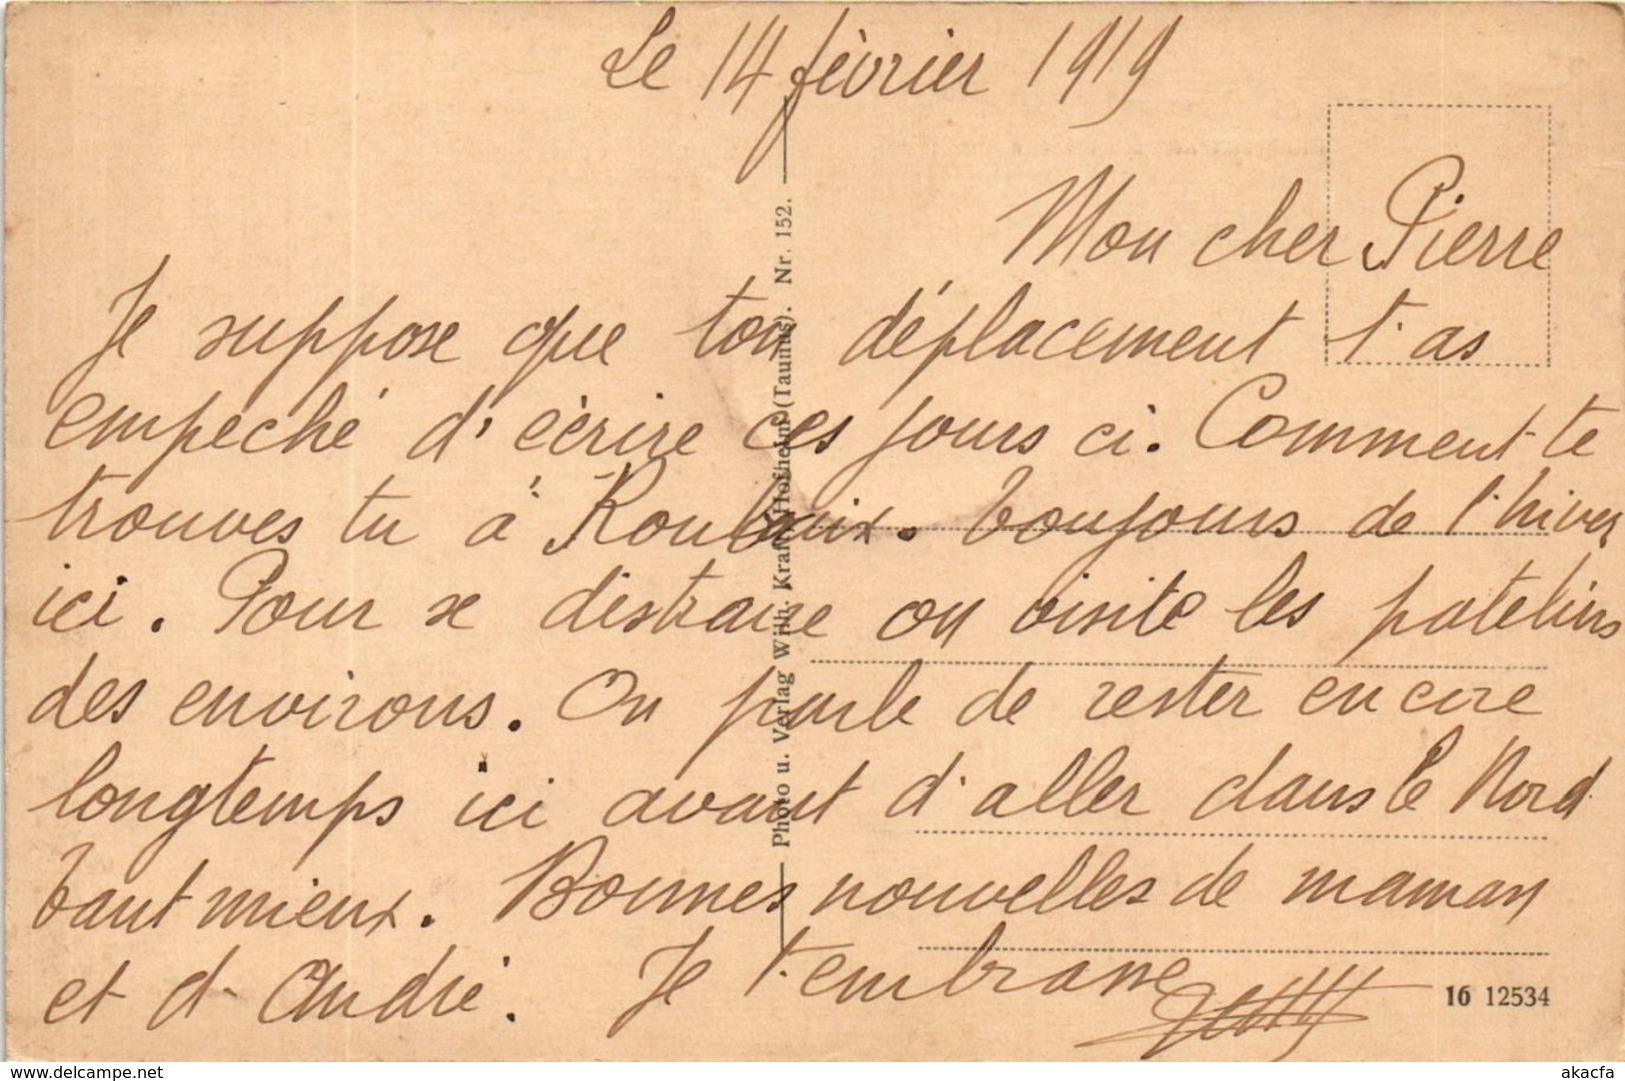 Le 14 février 1919
Mon cher Pierre
Je suppose que ton déplacement t'as
empeché d'écrire ces jours ci. Comment te
trouves tu à Roubaix. Toujours de l'hiver
ici. Pour se distraire on visite les patelins
des environs. On parle de rester encore
longtemps ici avant d'aller dans le Nord
tant mieux. Bonnes nouvelles de maman
et d'André. Je t'embrasse
Photo u. Verlag Wilh. Kraft, Hofheim (Taunus). Nr. 152.
16 12534
delcampe.net
akacfa